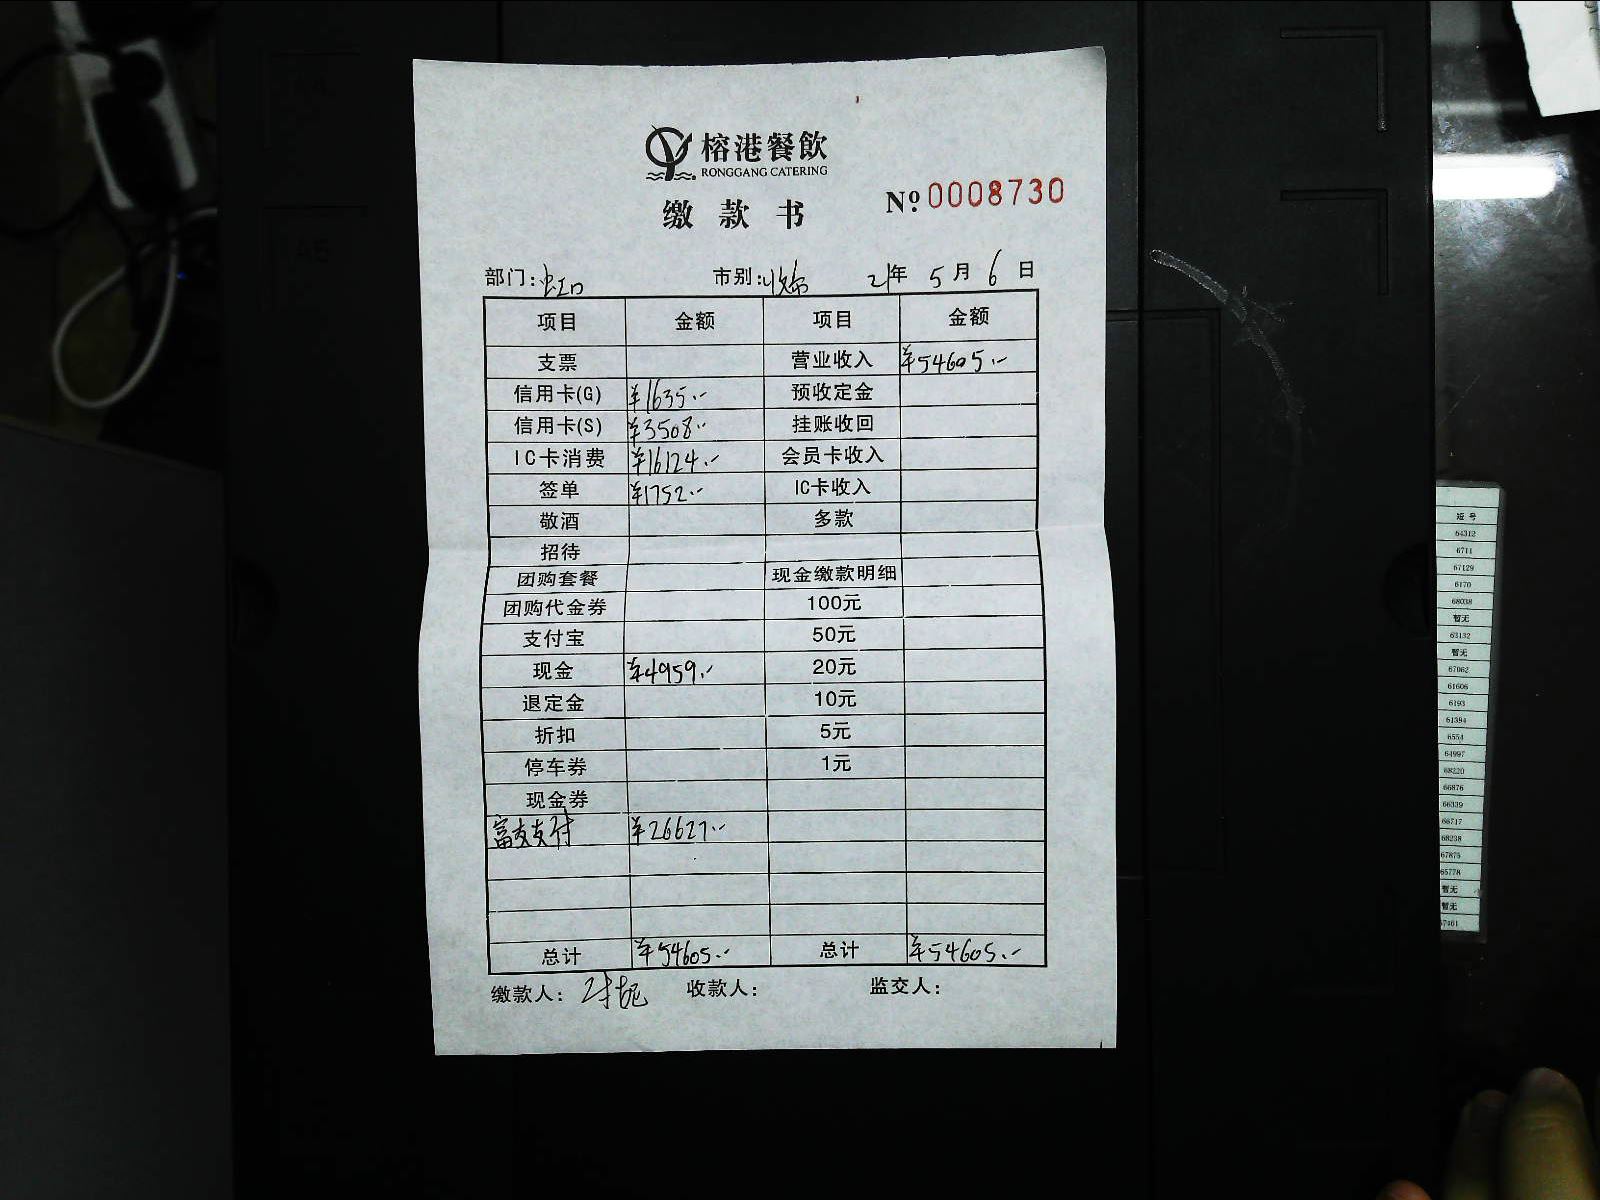 榕港餐飲
RONGGANG CATERING
缴款书 Nº 0008730
部门：虹口 市别： 21年 5月 6日
项目 金额 项目 金额
支票 营业收入 ¥54605.-
信用卡(G) ¥1635.- 预收定金
信用卡(S) ¥3508.- 挂账收回
IC卡消费 ¥16124.- 会员卡收入
签单 ¥1752.- IC卡收入
敬酒 多款
招待
团购套餐 现金缴款明细
团购代金券 100元
支付宝 50元
现金 ¥4959.- 20元
退定金 10元
折扣 5元
停车券 1元
现金券
富友支付 ¥26627.-
总计 ¥54605.- 总计 ¥54605.-
缴款人： 收款人： 监交人：
短号
64312
6711
67129
6170
68038
暂无
63132
暂无
67062
61606
6193
61394
6554
64997
68220
66876
66339
66717
68238
67875
65778
暂无
暂无